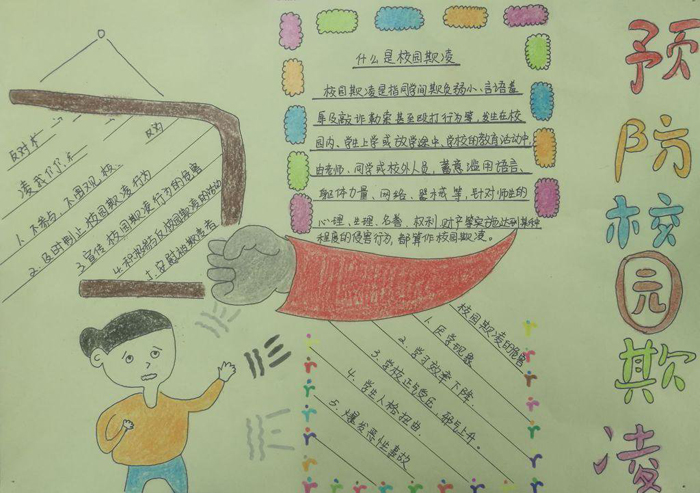 预防校园欺凌
什么是校园欺凌
校园欺凌是指同学间欺负弱小、言语羞
辱及敲诈勒索甚至殴打行为等，发生在校
园内、学生上学或放学途中、学校的教育活动中，
由老师、同学或校外人员，蓄意滥用语言、
躯体力量、网络、器械等，针对师生的
心理、生理、名誉、权利、财产等实施达到某种
程度的侵害行为，都算作校园欺凌。
反对
凌我们
1. 不参与、不围观校
2. 及时制止校园欺凌行为
3. 宣传校园欺凌行为的危害
4. 积极参与反校园欺凌的活动
5. 安慰被欺凌者
校园欺凌的危害
1. 厌学现象
2. 学习效率下降
3. 学校正气受压，邪气上升。
4. 学生人格扭曲
5. 爆发恶性事故